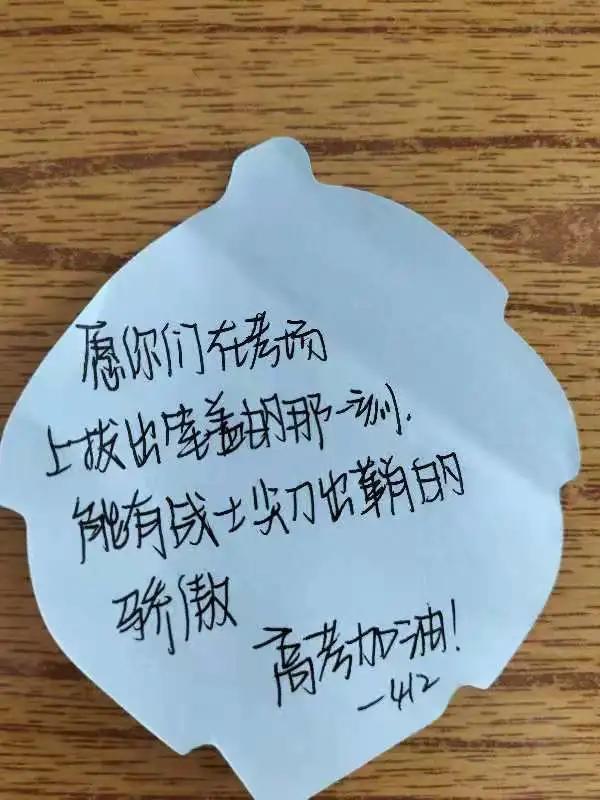 愿你们在考场
上拔出笔盖的那一刹,
能有战士尖刀出鞘的
骄傲
高考加油!
-412